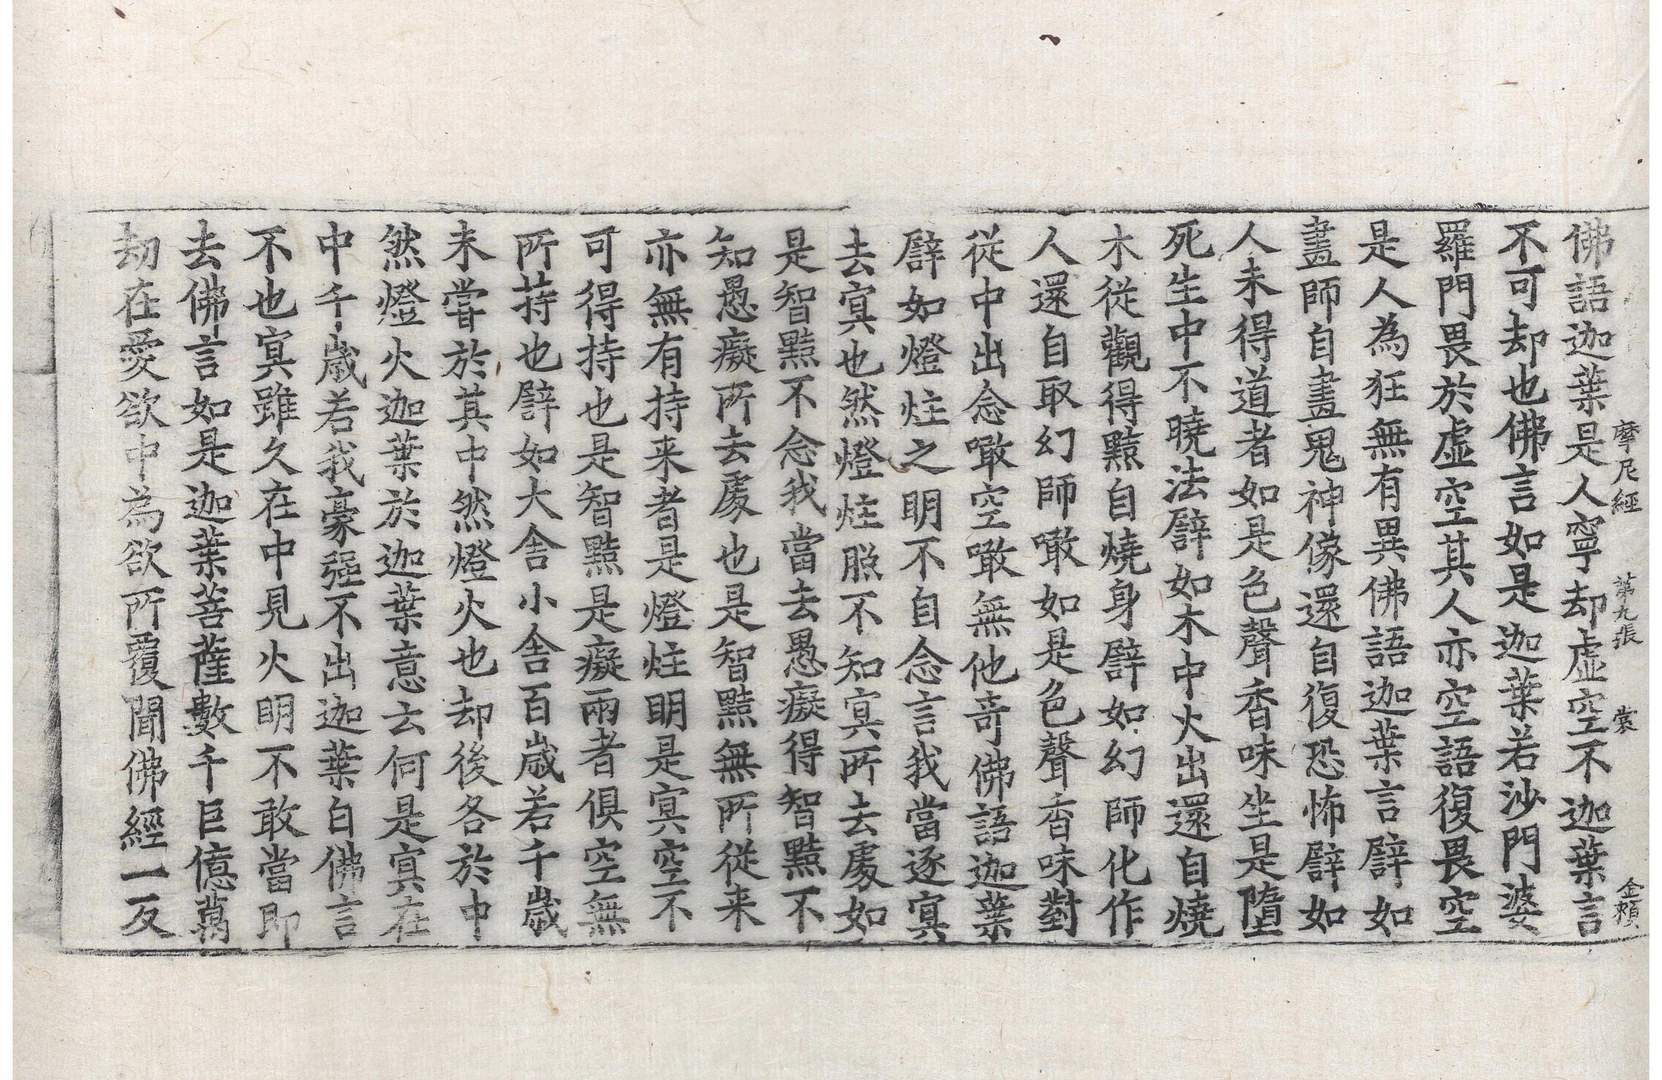 摩尼經　第九張　裳　金賴
佛語迦葉是人寧却虛空不迦葉言
不可却也佛言如是迦葉若沙門婆
羅門畏於虛空其人亦空語復畏空
是人為狂無有異佛語迦葉言譬如
畫師自畫鬼神像還自復恐怖譬如
人未得道者如是色聲香味坐是墮
死生中不曉法譬如木中火出還自燒
木從觀得黠自燒身譬如幻師化作
人還自取幻師噉如是色聲香味對
從中出念噉空噉無他奇佛語迦葉
譬如燈炷之明不自念言我當逐冥
去冥也然燈炷照不知冥所去處如
是智黠不念我當去愚癡得智黠不
知愚癡所去處也是智黠無所從来
亦無有持来者是燈炷明是冥空不
可得持也是智黠是癡兩者俱空無
所持也譬如大舍小舍百歲若千歲
未甞於其中然燈火也却後各於中
然燈火迦葉於迦葉意云何是冥在
中千歲若我豪强不出迦葉白佛言
不也冥雖久在中見火明不敢當即
去佛言如是迦葉菩薩數千巨億萬
劫在愛欲中為欲所覆聞佛經一反